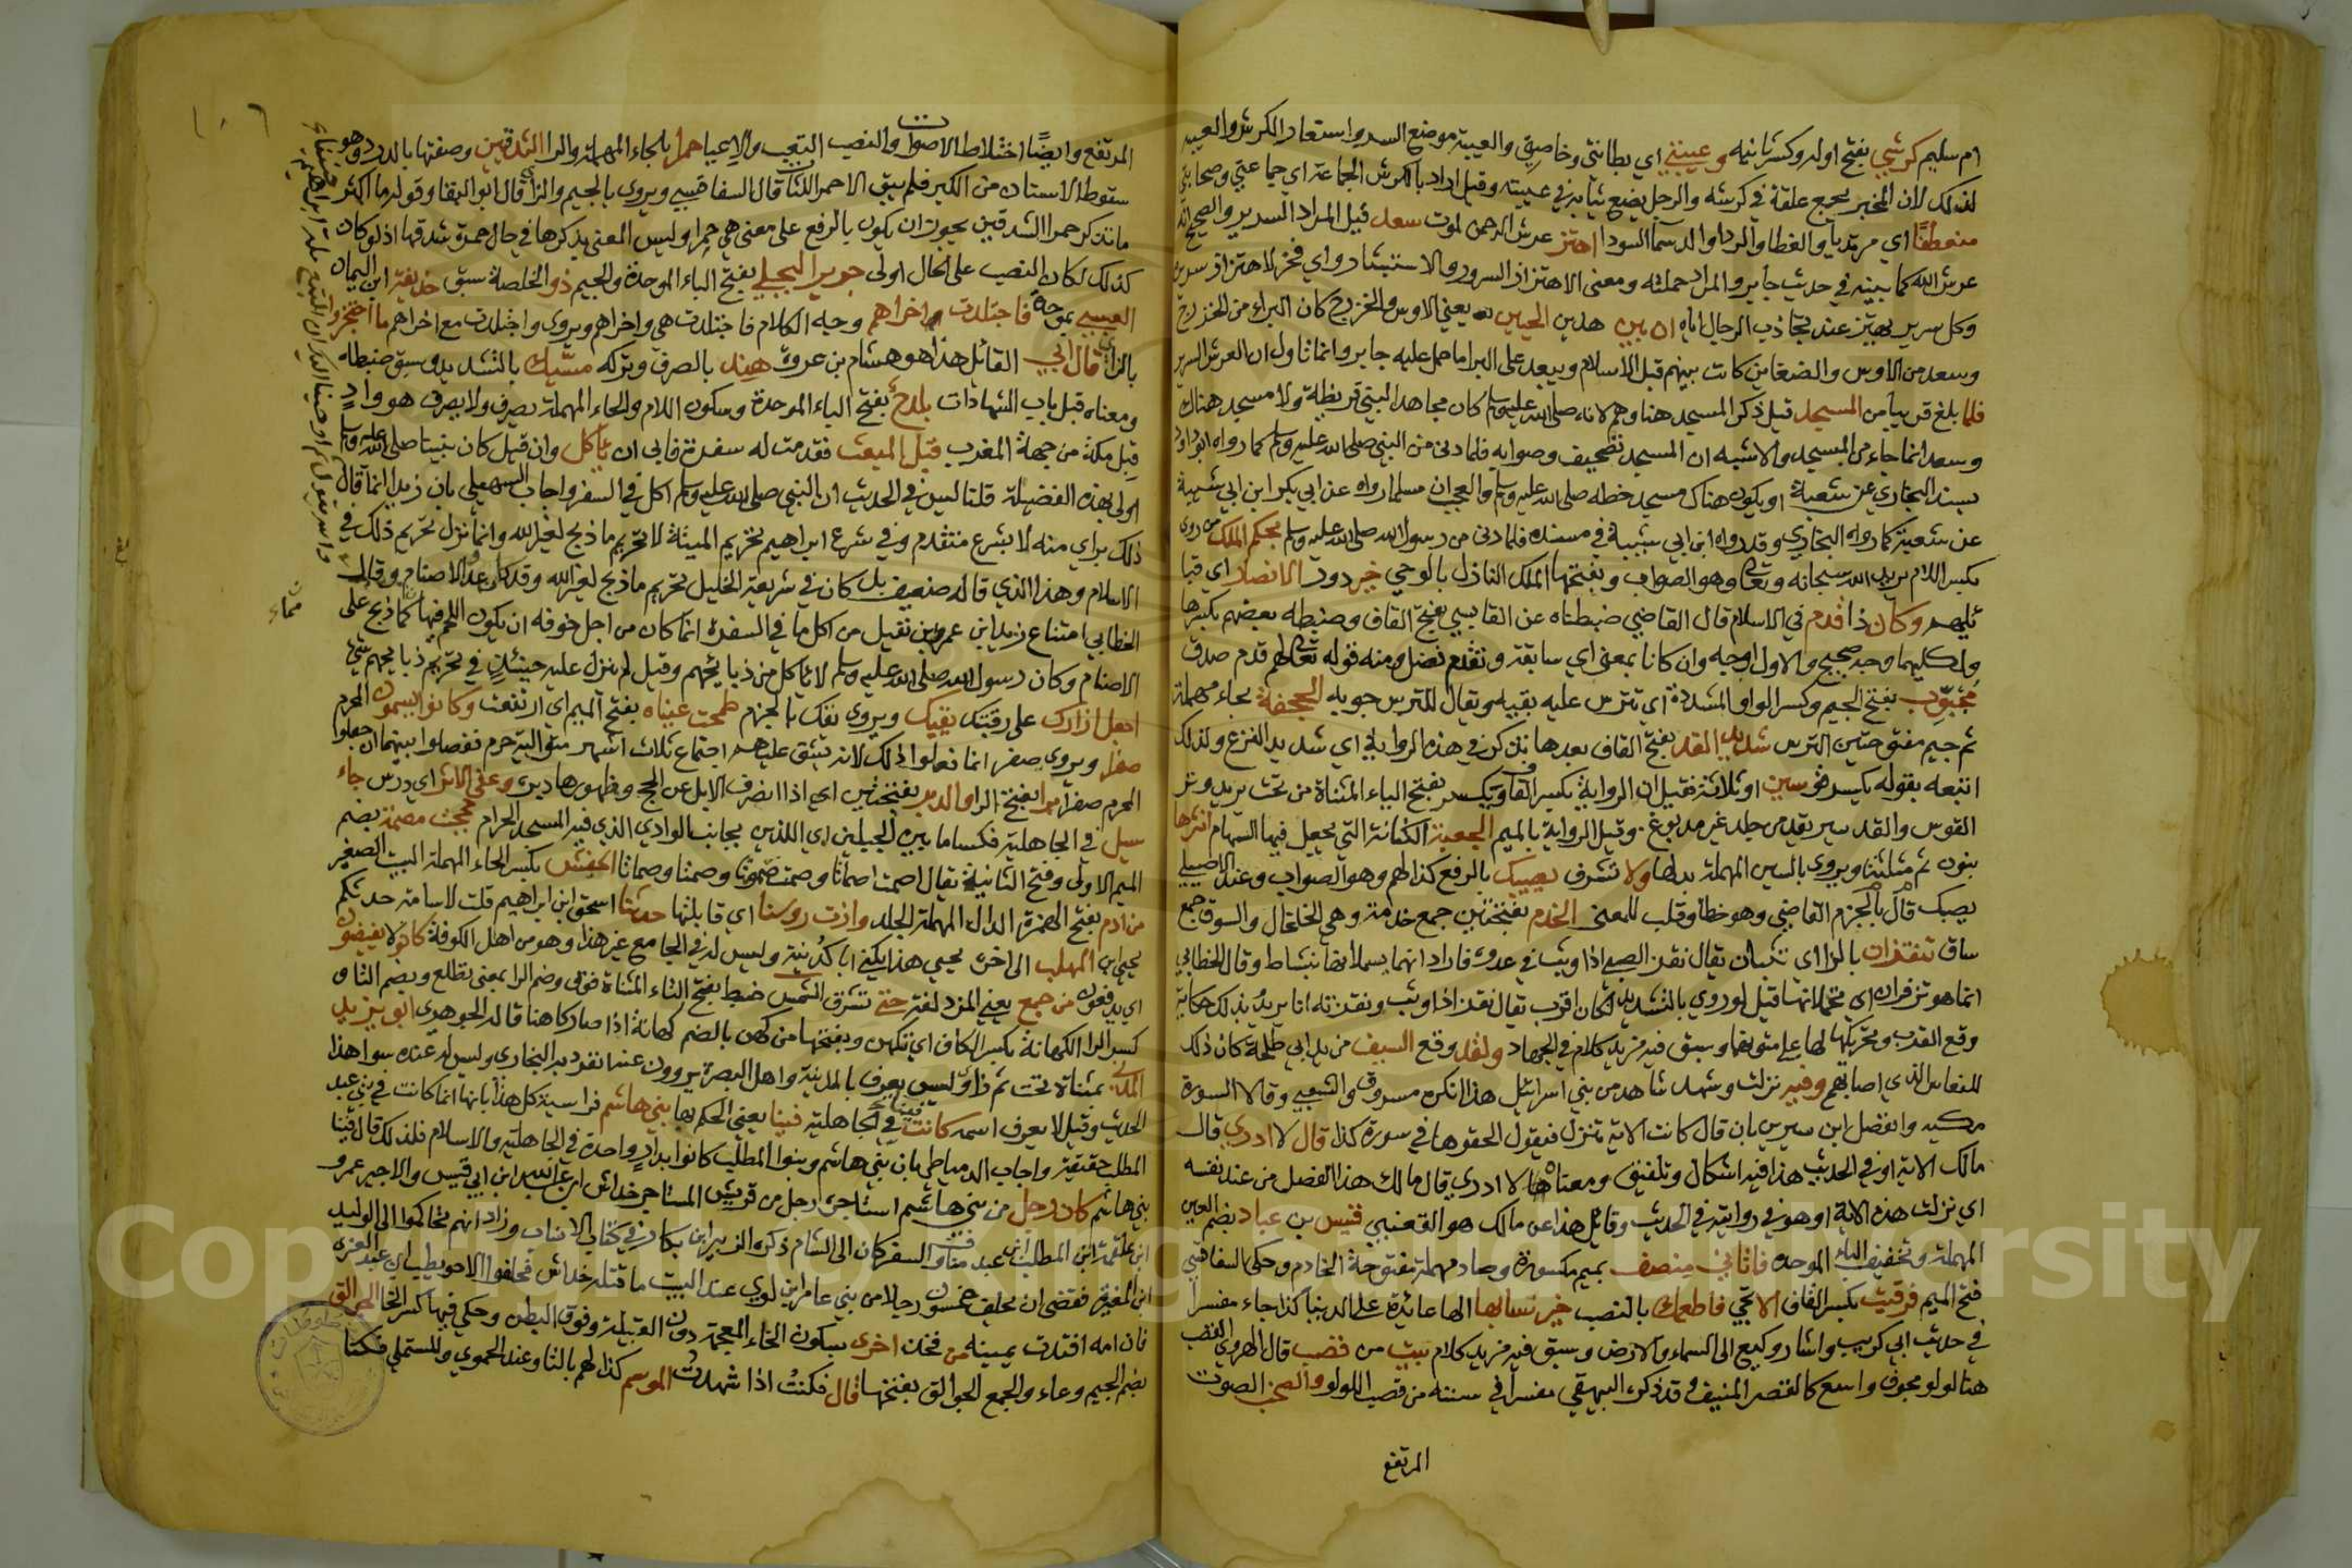 ام سليم كرشي بفتح اوله وكسر ثانيه وعيبتي اي بطانتي وخاصتي والعيبة موضع السر واستعار الكرش والعيبة
لذلك لان المخبر يجمع علفه في كرشه والرجل يضع ثيابه في عيبته وقيل اراد بالكرش الجماعة اي جماعتي وصحابتي
متعطفا اي مرتديا والعطاف الرداء والدسما السودا اهتز عرش الرحمن لموت سعد قيل المراد السرير والصحيح انه
عرش الله كما بينه في حديث جابر والمراد حملته ومعنى الاهتزاز السرور والاستبشار واي فخر لاهتزاز سرير
وكل سرير يهتز عند تجاذب الرجال اياه ان بين هذين الحيين يعني الاوس والخزرج كان البراء من الخزرج
وسعد من الاوس والضغاين كانت بينهم قبل الاسلام ويبعد على البرا ما حمل عليه جابر وانما تاول ان العرش السرير
فلما بلغ قريبا من المسجد قيل ذكر المسجد هنا وهم لانه صلى الله عليه وسلم كان مجاهدا لبني قريظة ولا مسجد هناك
وسعد انما جاء من المسجد والاشبه ان المسجد تصحيف وصوابه فلما دنى من النبي صلى الله عليه وسلم كما رواه ابو داود
بسند البخاري عن شعبة او يكون هناك مسجد خطه صلى الله عليه وسلم والعجب ان مسلما رواه عن ابي بكر ابن ابي شيبة
عن شعبة كما رواه البخاري وقد رواه ابن ابي شيبة في مسنده فلما دنى من رسول الله صلى الله عليه وسلم بحكم الملك من روى
بكسر اللام يريد الله سبحانه وتعالى وهو الصواب وبفتحها الملك النازل بالوحي خير دور الانصار اي قبا
ئلهم وكان ذا قدم في الاسلام قال القاضي ضبطناه عن القابسي بفتح القاف وضبطه بعضهم بكسرها
ولكليهما وجه صحيح والاول اوجه وان كانا بمعنى اي سابقة وتقدم فضل ومنه قوله تعالى لهم قدم صدق
مجوب بفتح الجيم وكسر الواو المشددة اي تترس عليه بقيه ويقال للترس جوبه الحجفة بحاء مهملة
ثم جيم مفتوحتين الترس شديد القد بفتح القاف بعدها يذكر في هذه الرواية اي شديد النزع ولذلك
اتبعه بقوله يكسر قوسين او ثلاثة فقيل ان الرواية بكسر القاف ويكسر بفتح الياء المثناة من تحت يريد وتر
القوس والقد سير يقد من جلد غير مدبوغ وقيل الرواية بالميم الجعبة الكنانة التي يجعل فيها السهام انثرها
بنون ثم مثلثة ويروى بالسين المهملة بدلها ولا تشرف يصيبك بالرفع كذا لهم وهو الصواب وعند الاصيلي
يصبك قال بالجزم القاضي وهو خطا وقلب للمعنى الخدم بفتحتين جمع خدمة وهي الخلخال والسوق جمع
ساق تنقزان بالزاي تثبان يقال نقز الصبي اذا وثب في عدوه فاراد انهما يسملانها بنشاط وقال الخطابي
انما هو تزفران اي تحملانها قيل لو روي بالتشديد لكان اقرب يقال نقز اذا وثب ونقزته انا يريد بذلك حكاية
وقع القرب وتحريكها لها على متونهما وسبق فيه مزيد كلام في الجهاد ولقد وقع السيف من يد ابي طلحة كان ذلك
للنعاس الذي اصابهم وفيه نزلت وشهد شاهد من بني اسرائيل هذا انكره مسروق والشعبي وقالا السورة
مكية وانفصل ابن سيرين بان قال كانت الاية تنزل فيقول الحقوها في سورة كذا قال لا ادري قال
مالك الاية او في الحديث هذا فيه اشكال وتلفيق ومعناه لا ادري قال مالك هذا الفصل من عند نفسه
اي نزلت هذه الاية او هو في روايته في الحديث وقائل هذا عن مالك هو القعنبي قيس بن عباد بضم العين
المهملة وتخفيف الباء الموحدة فاتاني منصف بميم مكسورة وصاد مهملة مفتوحة الخادم وحكى السفاقسي
فتح الميم فرقيت بكسر القاف الاعجمي فاطعمك بالنصب خير نسائها الها عائدة على الدنيا كذا جاء مفسرا
في حديث ابي كريب واشار وكيع الى السماء والارض وسبق فيه مزيد كلام ببيت من قصب قال الهروي القصب
هنا لولو مجوف واسع كالقصر المنيف وقد ذكره البيهقي مفسرا في سننه من قصب اللولو والصخب الصوت
المرتفع
١٠٦
المرتفع وايضا اختلاط الاصوات والنصب التعب والاعيا حمرا بالحاء المهملة والرا الشدقين وصفتها بالدرد وهو
سقوط الاسنان من الكبر فلم يبق الا حمر اللثات قال السفاقسي ويروى بالجيم والزاي قال ابو البقا وقوله ما اكثر
ما تذكر حمرا الشدقين يجوز ان يكون بالرفع على معنى هي حمرا وليس المعنى يذكرها في حال حمرة شدقها اذ لو كان
كذلك لكان النصب على الحال اولى جرير البجلي بفتح الباء الموحدة والجيم ذو الخلصة سبق حذيفة ابن اليمان
العبسي بموحدة فاجتلدت اخراهم وجه الكلام فاجتلدت هي واخراهم ويروى واجتلدت مع اخراهم ما احتجزوا
بالزاي قال ابي القائل هذا هو هشام بن عروة هند بالصرف وتركه مسيك بالتشديد وسبق ضبطه
ومعناه قبل باب الشهادات بلدح بفتح الباء الموحدة وسكون اللام والحاء المهملة يصرف ولا يصرف هو واد
قبل مكة من جهة المغرب قبل المبعث فقدمت له سفرة فابى ان ياكل وان قيل كان نبينا صلى الله عليه وسلم
اولى بهذه الفضيلة قلنا ليس في الحديث ان النبي صلى الله عليه وسلم اكل في السفر واجاب السهيلي بان زيدا انما قال
ذلك براي منه لا بشرع متقدم وفي شرع ابراهيم تحريم الميتة لا تحريم ما ذبح لغير الله وانما نزل تحريم ذلك في
الاسلام وهذا الذي قاله ضعيف بل كان في شريعة الخليل تحريم ما ذبح لغير الله وقد كان عدو الاصنام وقال
الخطابي امتناع زيد ابن عمرو بن نفيل من اكل ما في السفرة انما كان من اجل خوفه ان يكون اللحم فيها مما ذبح على
الاصنام وكان رسول الله صلى الله عليه وسلم لا ياكل من ذبائحهم وقيل لم ينزل عليه حينئذ في تحريم ذبايحهم شي
اجعل ازارك على رقبتك يقيك ويروى يقك بالجزم طمحت عيناه بفتح الميم اي ارتفعت وكانوا يسمون المحرم
صفرا ويروى صفر انما فعلوا ذلك لانه يشق عليهم اجتماع ثلاث اشهر متوالية حرم ففصلوا بينهما ان جعلوا
المحرم صفرا برا بفتح الرا والدبر بفتحتين اي اذا انصرف الابل عن الحج وظهورها دبرة وعفى الاثر اي درس جاء
سيل في الجاهلية فكسا ما بين الجبلين اي اللذين بجانب الوادي الذي فيه المسجد الحرام حجت مصمتة بضم
الميم الاولى وفتح الثانية يقال اصمت اصماتا وصمت صموتا وصمتا وصماتا الحفش بكسر الحاء المهملة البيت الصغير
من ادم بفتح الهمزة الدال المهملة الجلد وازت روسنا اي قابلتها حدثنا اسحق ابن ابراهيم قلت لاسامة حدثكم
يحيى ابن المهلب الى اخره يحيى هذا يكنى ابا كدينة وليس له في الجامع غير هذا وهو من اهل الكوفة كانوا لا يفيضون
اي يدفعون من جمع يعني المزدلفة حتى تشرق الشمس ضبط بفتح التاء المثناة فوق وضم الرا بمعنى تطلع وبضم التا و
كسر الرا الكهانة بكسر الكاف اي تكهن وبفتحها من كهن بالضم كهانة اذا صار كاهنا قاله الجوهري ابو يزيد
المدني بمثناة تحت ثم زاي وليس يعرف بالمدينة واهل البصرة يروون عنه انفرد به البخاري وليس له عنده سوا هذا
الحديث وقيل لا يعرف اسمه كانت في الجاهلية فينا يعني الحكم بها بني هاشم قراسية كل هذا بانها انما كانت في بني عبد
المطلب حقيقة واجاب الدمياطي بان بني هاشم وبنوا المطلب كانوا يدا واحدة في الجاهلية والاسلام فلذلك قال فينا
بني هاشم كان رجل من بني هاشم استاجره رجل من قريش المستاجر خداش ابن عبد الله ابن ابي قيس والاجير عمرو
ابن علقمة ابن المطلب ابن عبد مناف والسفر كان الى الشام ذكره الزبير ابن بكار في كتاب الانساب وزاد انهم تحاكموا الى الوليد
ابن المغيرة فقضى ان يحلف خمسون رجلا من بني عامر ابن لوي عند البيت ما قتله خداش فحلفوا الا حويطب ابن عبد العزى
فان امه افتدت يمينه من فخذ اخرى بسكون الخاء المعجمة دون القبيلة وفوق البطن وحكي فيها كسر الخا الجوالق
بضم الجيم وعاء والجمع الجوالق بفتحها قال فكنت اذا شهدت الموسم كذا لهم بالتا وعند الحموي والمستملي فكتبا
Copyright © King Saud University